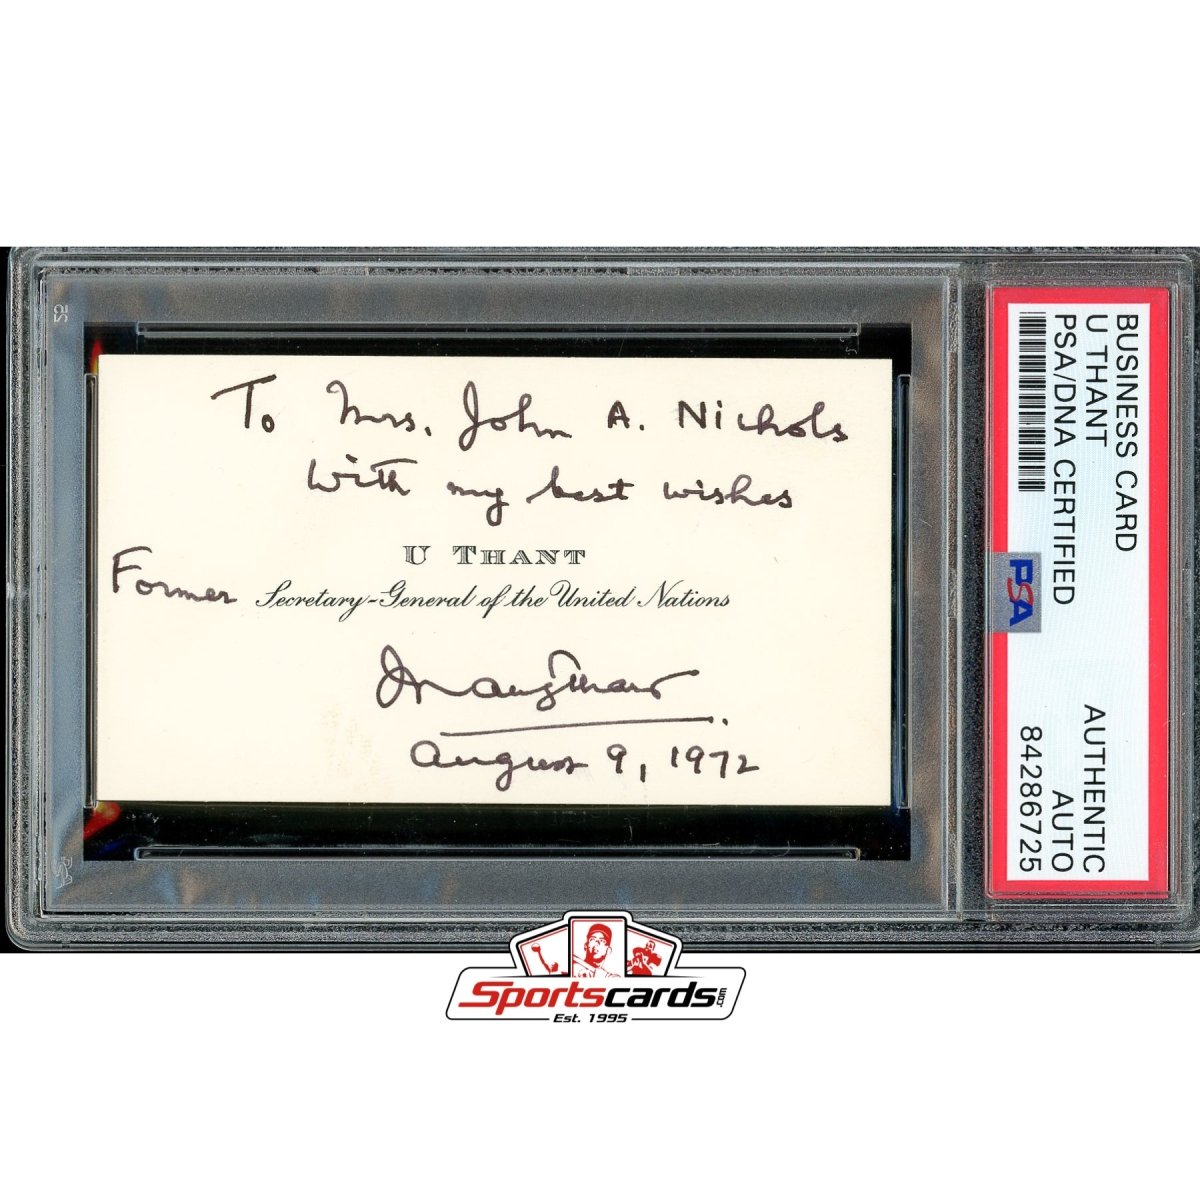 To Mrs. John A. Nichols
With my best wishes
U THANT
Former Secretary-General of the United Nations
August 9, 1972
BUSINESS CARD
U THANT
PSA/DNA CERTIFIED
PSA
AUTHENTIC
AUTO
84286725
Sportscards.com
Est. 1995